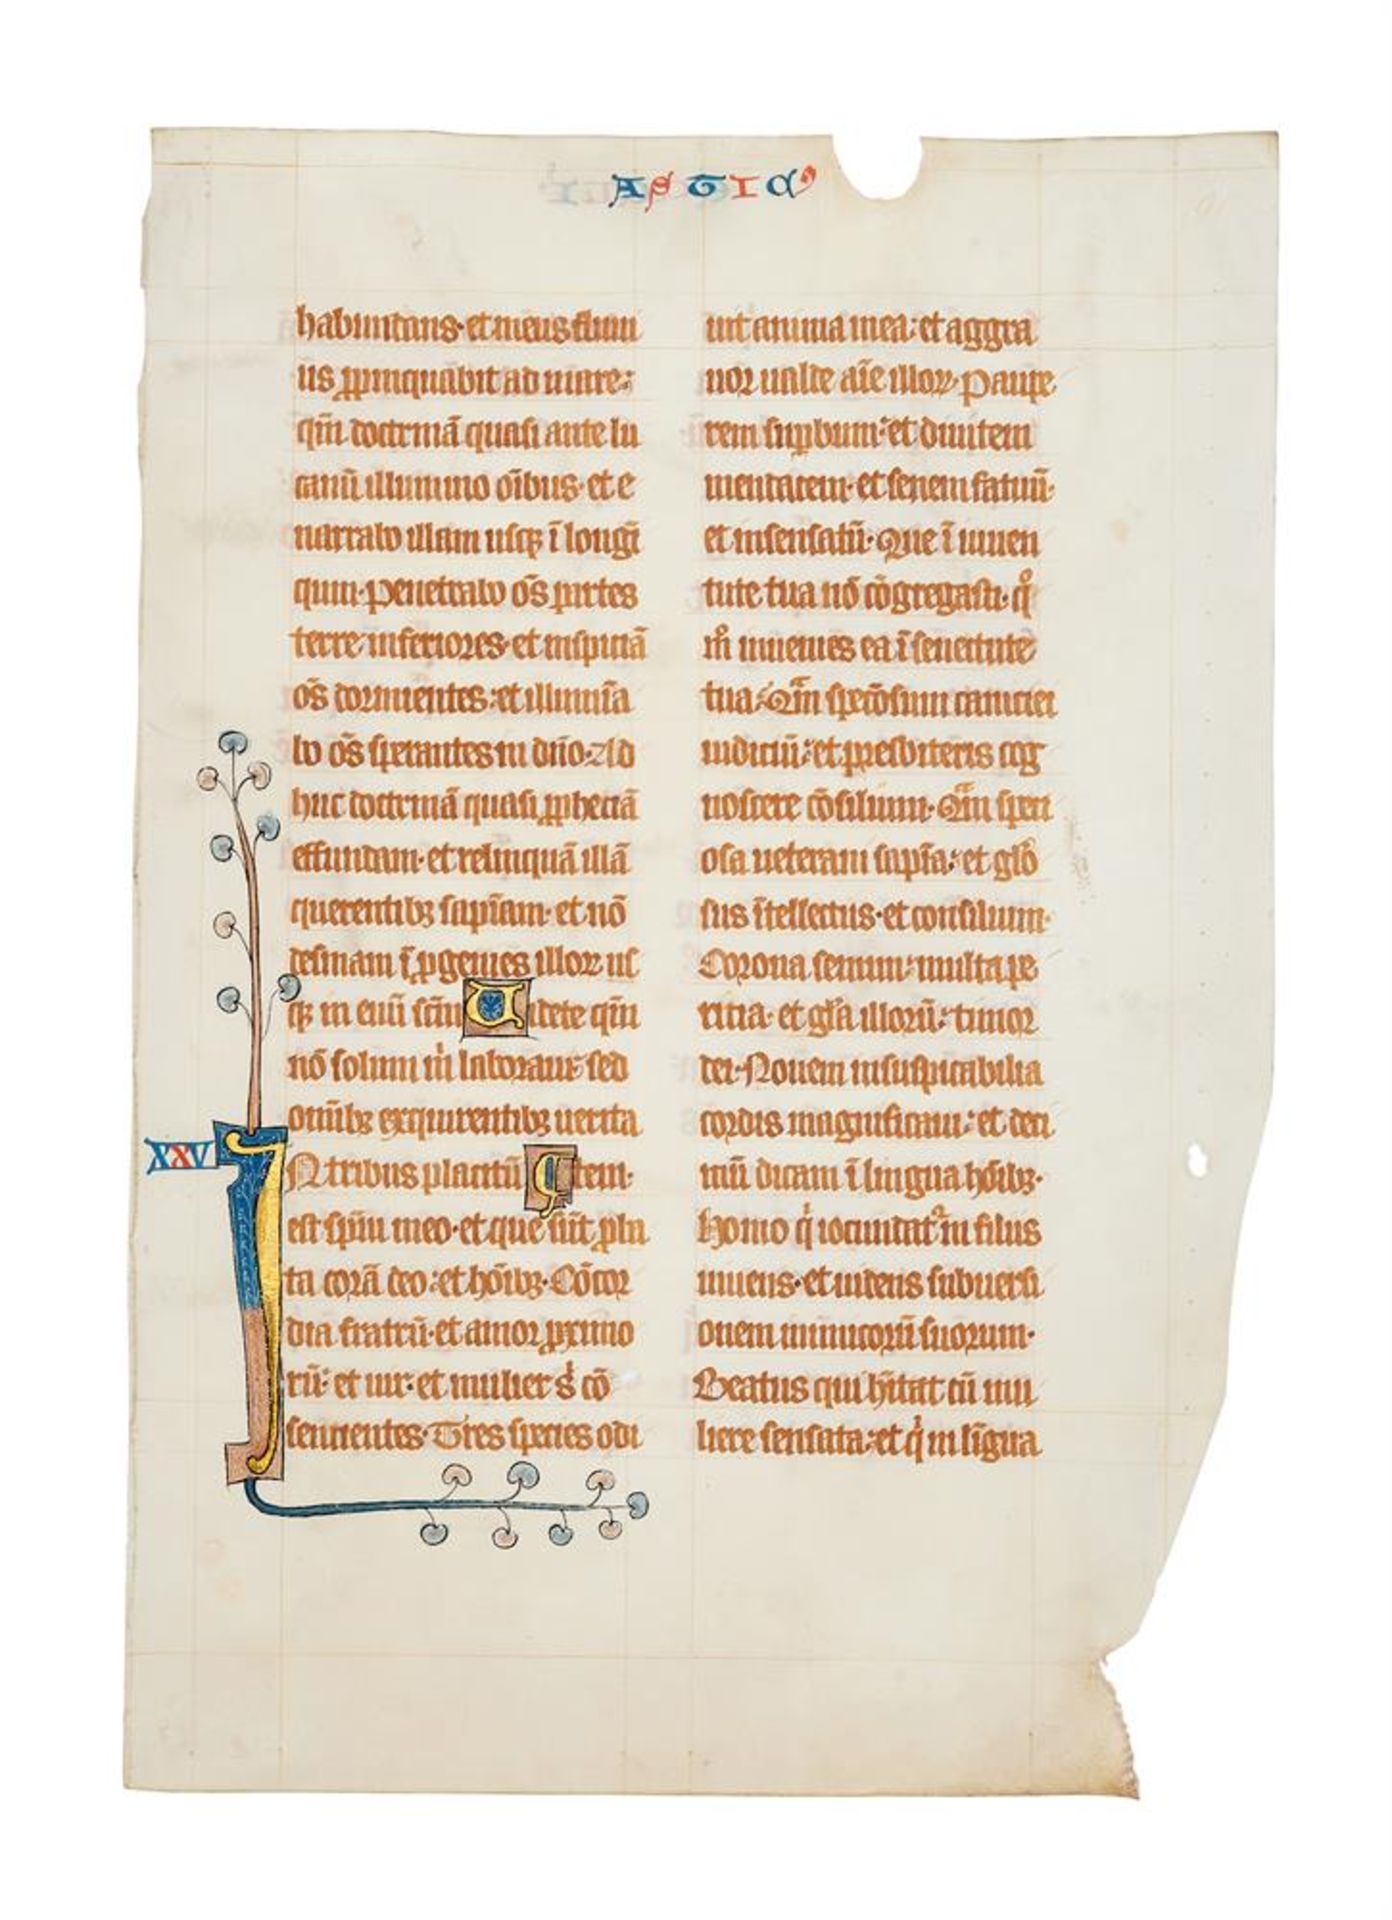 ASTIC⁹
habundans· et meus fluui
us ꝓpinquabit ad mare:
qm̄ doctrinā quasi ante lu
canū illumino oībus· et e
narrabo illam usqꝫ ī longī
quum· Penetrabo om̄s partes
terre inferiores· et inspiciā
om̄s dormientes: et illumīa
bo om̄s sperantes in dn̄o· Ad
huc doctrinā quasi ꝓphetiā
effundam· et relinquā illā
querentibꝫ sapīam· et nō
desinam ī ꝓgenies illoꝝ us
qꝫ in euū sc̄m Uidete qm̄
nō solum m̄i laboraui: sed
omībꝫ exquirentibꝫ uerita
XXV
IN tribus placitū tem·
est spūi meo· et que sūt ꝓba
ta corā deo: et hōibꝫ· Cōcor
dia fratrū· et amor ꝓximo
rū: et uir· et mulier s̄ cō
sentientes· Tres species odi
uit anima mea: et aggra
uor ualde aīe illoꝝ· Paupe
rem suꝑbum: et diuitem
mendacem· et senem fatuū·
et insensatū· Que ī iuuen
tute tua nō cōgregasti· qͦ
mͦ inuenies ea ī senectute
tua: Qm̄ speciosum caniciei
iudiciū: et presbiteris cog
noscere cōsilium· Qm̄ speci
osa ueterani sapīa: et glō
sus ītellectus· et consilium·
Corona senum: multa pe
ritia· et glā illorū: timor
dei· Nouem insuspicabilia
cordis magnificaui: et deci
mū dicam ī lingua hōibꝫ·
homo qi iocundat in filiis
uiuens· et uidens subuersi
onem inimicorū suorum·
Beatus qui hītat cū mu
liere sensata: et qi in līgua